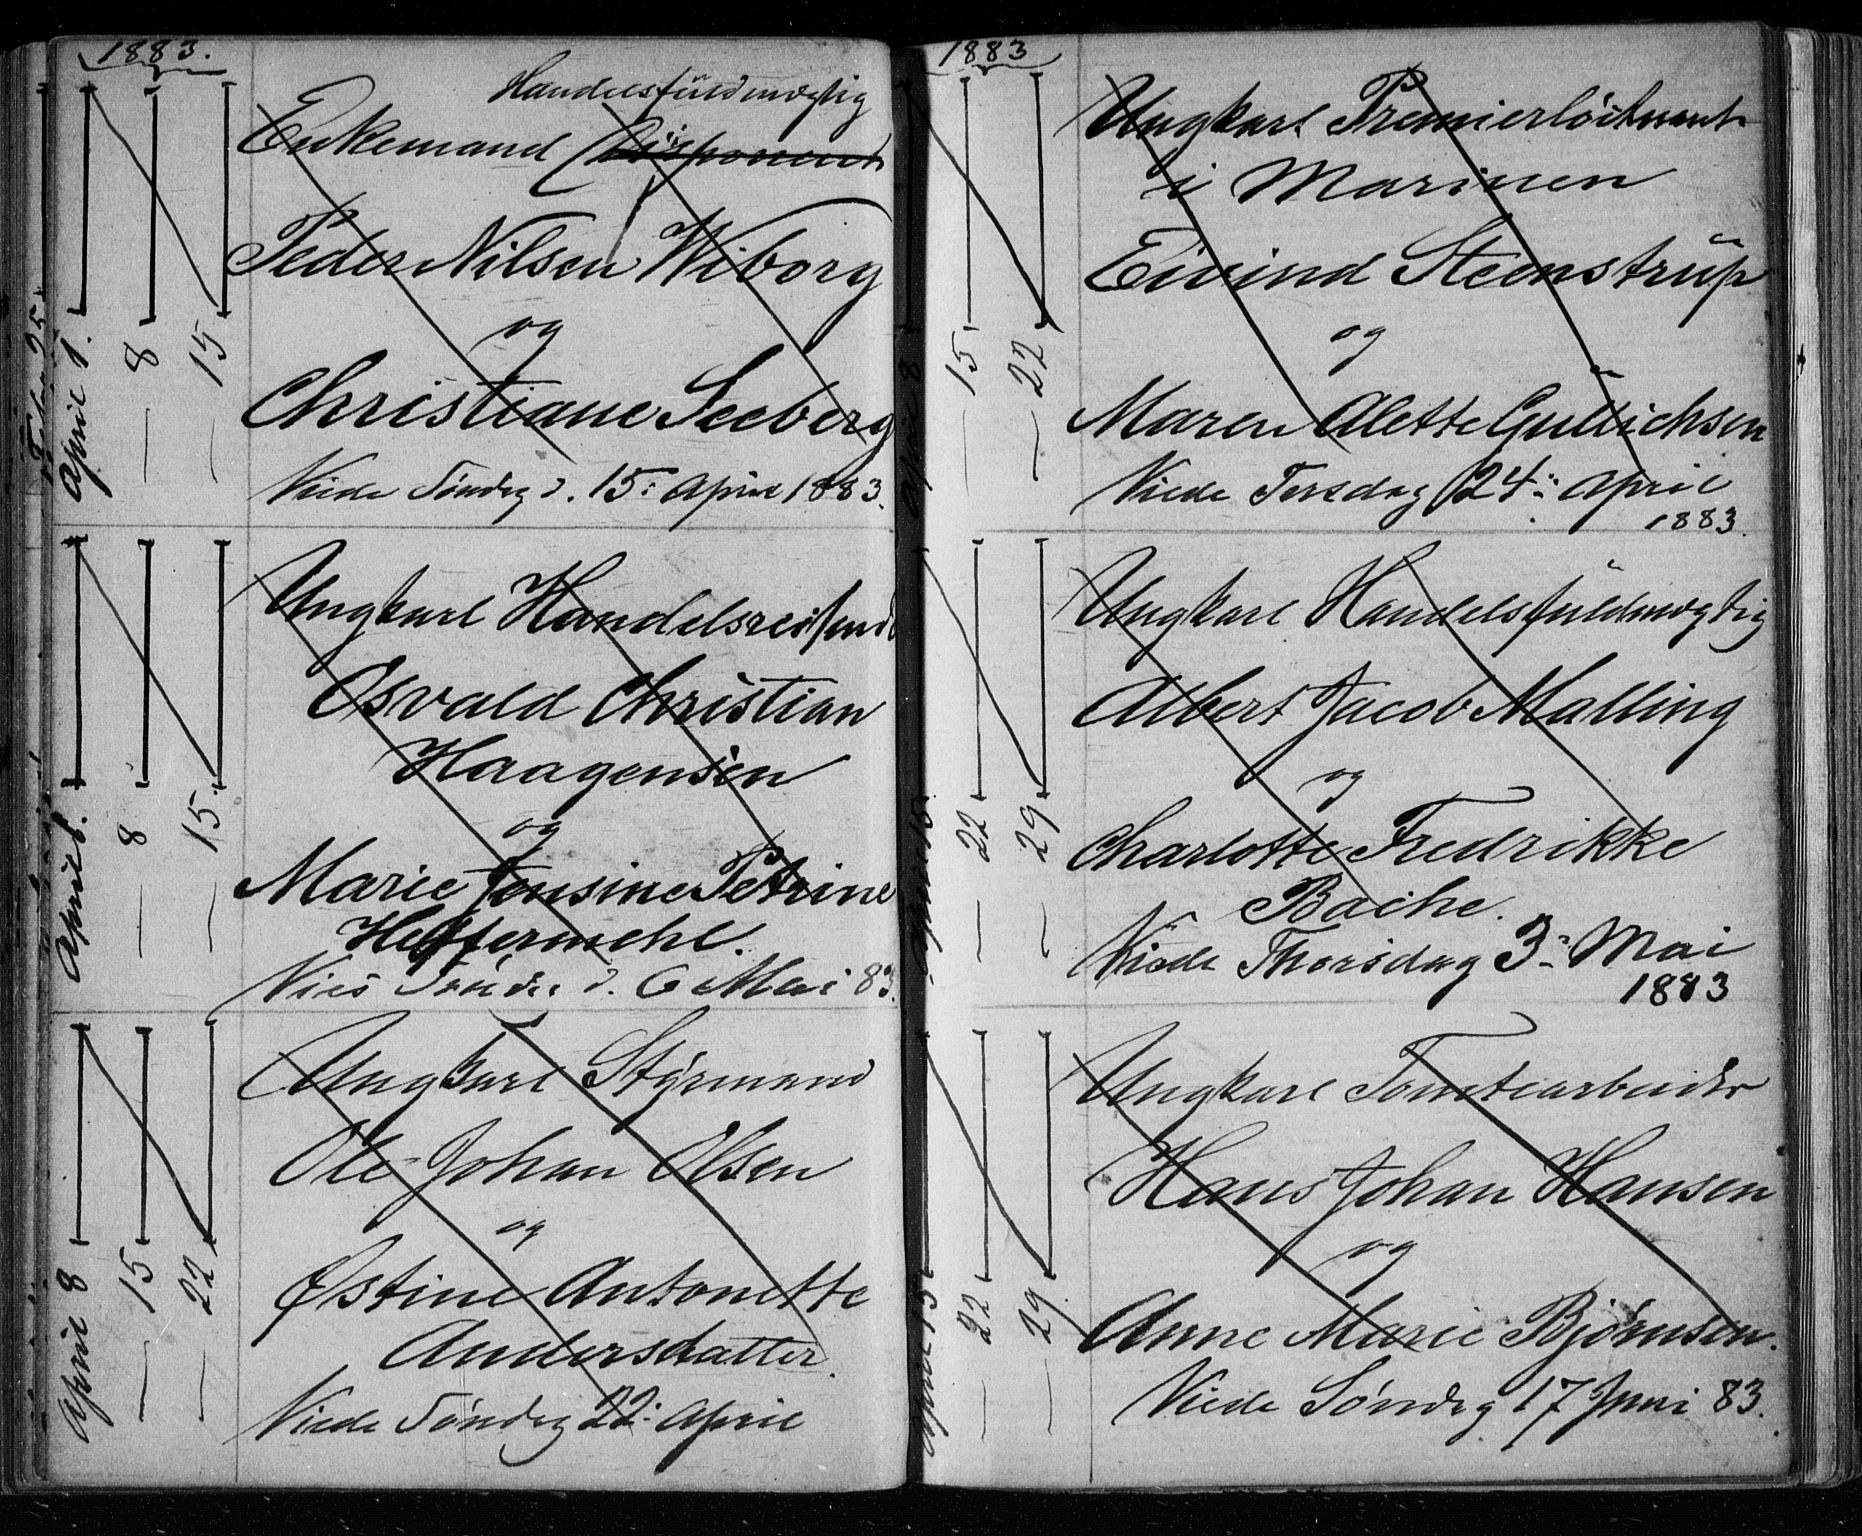 1883.
April 1.
— 8
— 15
Handelsfüldmægtig
Enkemand Disponent
Peder Nilsen Wiborg
og
Christiane Seeberg
Viede Søndag d. 15: April 1883.
April 8.
— 8
— 15
Ungkarl Handelsreisende
Osvald Christian
Haagensen
og
Marie Jensine Petrine
Heffermehl.
d. 6 Mai 83.
April 8
— 15
— 22
Ungkarl Styrmand
Ole Johan Olsen
og
Østine Antonette
Andersdatter.
Viede Søndag 22: April
1883
April 8
— 15
— 22
Ungkarl Premierløitnant
i Marinen
Eivind Steenstrüp
og
Maren Alette Gullichsen
Viede Tirsdag 24: April
1883.
April 15.
— 22
— 29
Ungkarl Handelsfüldmægtig
Albert Jacob Malling
og
Charlotte Fredrikke
Bache.
Viede Thorsdag 3: Mai
1883
April 15
— 22
— 29
Ungkarl Tomtearbeider
Hans Johan Hansen
og
Anne Marie Bjørnsen.
Viede Søndag 17 Juni 83.